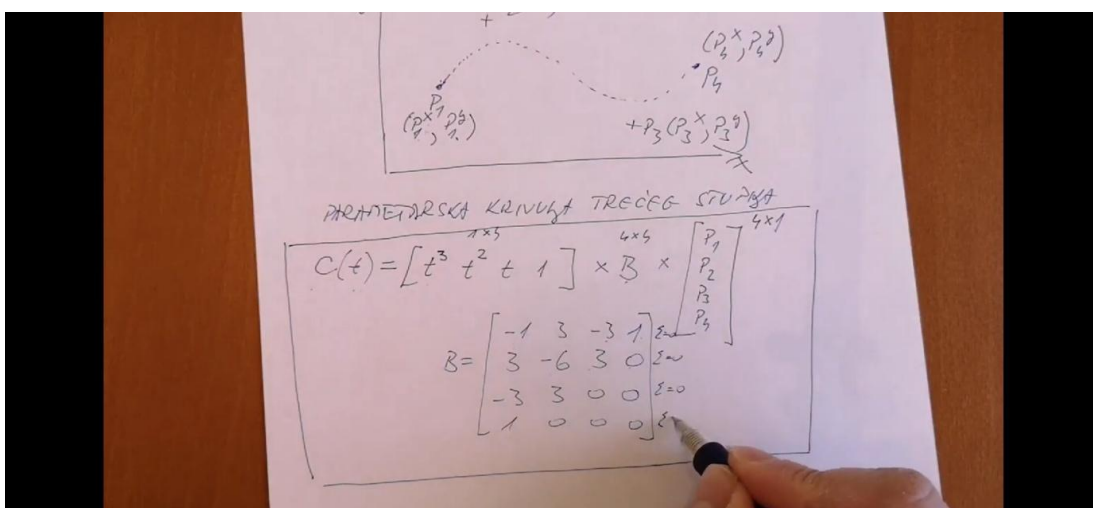 +
(P₄ˣ, P₄ʸ)
P₄
P₁
(P₁ˣ, P₁ʸ)
+P₃(P₃ˣ, P₃ʸ)
X
PARAMETARSKA KRIVULJA TREĆEG STUPNJA
1×4 4×4 4×1
C(t) = [t³ t² t 1] × B × [P₁
P₂
P₃
P₄]
B = [-1 3 -3 1] Σ=0
3 -6 3 0 Σ=0
-3 3 0 0 Σ=0
1 0 0 0 Σ